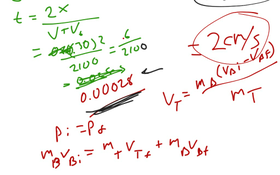 t = 2x / V+V₀
= (.30)2 / 2100 = .6 / 2100
0.00028
= 2cm/s
V_T = m_B (V_Bi - V_Bf) / m_T
p_i = p_f
m_B V_Bi = m_T V_Tf + m_B V_Bf